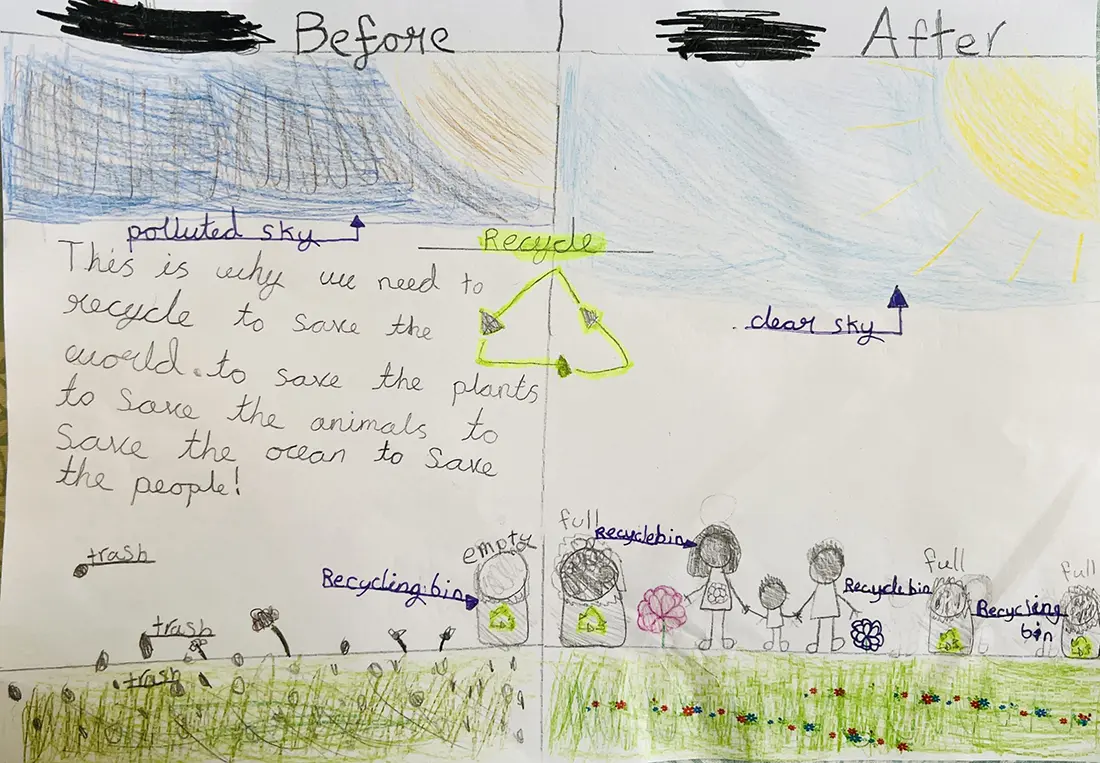 Before
After
polluted sky
This is why we need to
recycle to save the
world. to save the plants
to save the animals to
save the ocean to save
the people!
Recycle
clear sky
trash
trash
trash
empty
Recycling bin
full
Recycle bin
full
Recycle bin
full
Recycling
bin